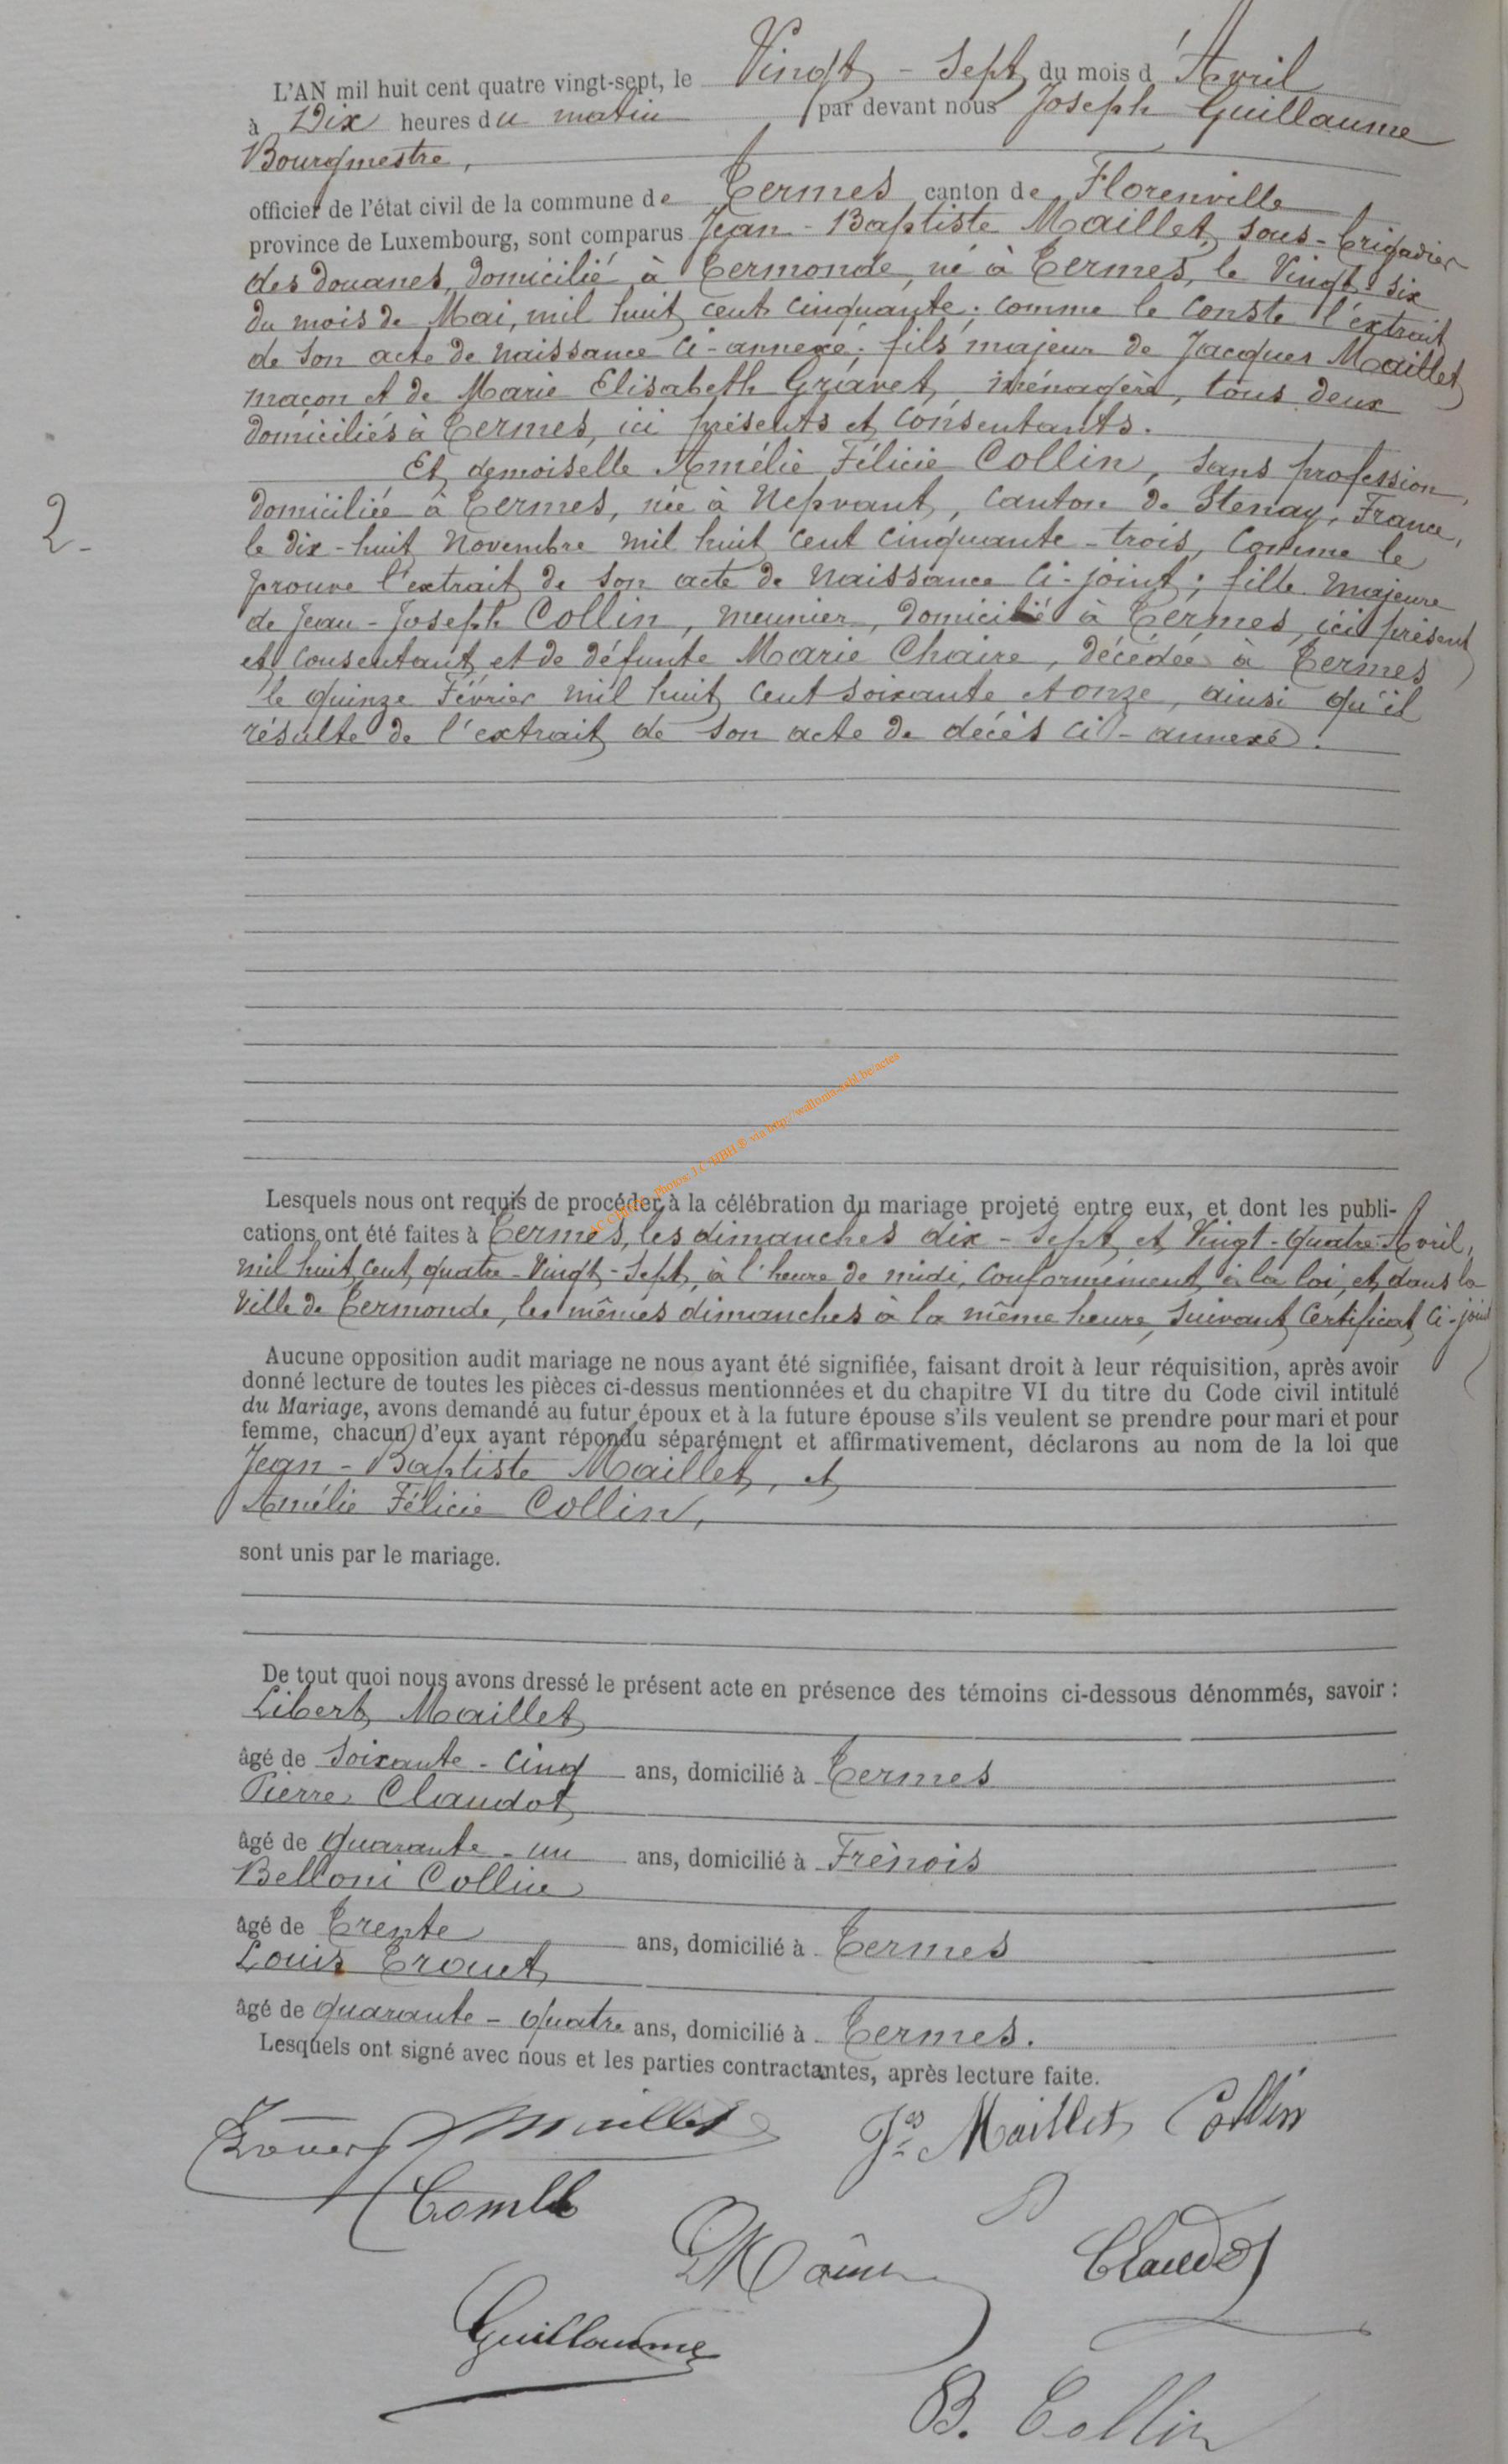 L'AN mil huit cent quatre vingt-sept, le Vingt-Sept du mois d'Avril
à Dix heures du matin par devant nous Joseph Guillaume
Bourgmestre,
officier de l'état civil de la commune de Termes canton de Florenville
province de Luxembourg, sont comparus Jean-Baptiste Maillet, sous-brigadier
des douanes, domicilié à Termonde, né à Termes, le Vingt-six
du mois de Mai, mil huit cent cinquante; comme le conste l'extrait
de son acte de naissance ci-annexé; fils majeur de Jacques Maillet
maçon et de Marie Elisabeth Griavet, ménagère, tous deux
domiciliés à Termes, ici présents et consentants.
Et demoiselle Amélie Félicie Collin, sans profession,
2.
domiciliée à Termes, née à Nepvant, canton de Stenay, France,
le dix-huit Novembre mil huit cent cinquante-trois, comme le
prouve l'extrait de son acte de naissance ci-joint; fille majeure
de Jean-Joseph Collin, meunier, domicilié à Termes, ici présent
et consentant, et de défunte Marie Chaire, décédée à Termes
le quinze Février mil huit cent soixante et onze, ainsi qu'il
résulte de l'extrait de son acte de décès ci-annexé.
Lesquels nous ont requis de procéder à la célébration du mariage projeté entre eux, et dont les publi-
cations ont été faites à Termes, les dimanches dix-sept et Vingt-quatre Avril,
mil huit cent quatre-Vingt-Sept, à l'heure de midi, conformément à la loi, et dans la
Ville de Termonde, les mêmes dimanches à la même heure, suivant certificat ci-joint
Aucune opposition audit mariage ne nous ayant été signifiée, faisant droit à leur réquisition, après avoir
donné lecture de toutes les pièces ci-dessus mentionnées et du chapitre VI du titre du Code civil intitulé
du Mariage, avons demandé au futur époux et à la future épouse s'ils veulent se prendre pour mari et pour
femme, chacun d'eux ayant répondu séparément et affirmativement, déclarons au nom de la loi que
Jean-Baptiste Maillet, et
Amélie Félicie Collin,
sont unis par le mariage.
De tout quoi nous avons dressé le présent acte en présence des témoins ci-dessous dénommés, savoir :
Libert Maillet
âgé de soixante-cinq ans, domicilié à Termes
Pierre Claudot
âgé de quarante-un ans, domicilié à Frènois
Belloni Collin
âgé de Trente ans, domicilié à Termes
Louis Trouet
âgé de quarante-quatre ans, domicilié à Termes.
Lesquels ont signé avec nous et les parties contractantes, après lecture faite.
Maillet Jes Maillet Collin
Claudot
Guillaume
B. Collin